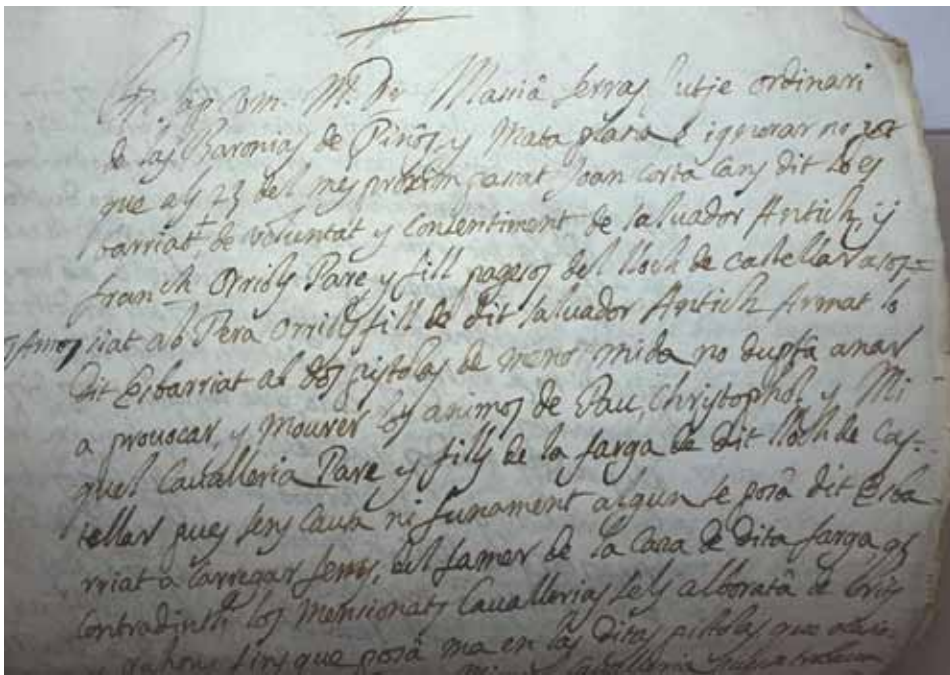 Mº. Dr. Massiâ serras jutje ordinari
de las Baronias de Pinós, y Mataplana e ignorar no pot
que als 23 del mes proxim passat Joan corta Cans dit lo es
barriat, de voluntat y consentiment de saluador Antich, y
franch. Orriols Pare y fill pagesos del lloch de castellar asos=
siat ab Pera Orriols fill de dit saluador Antich Armat lo
dit Esbarriat ab dos pistolas de menor mida no duptâ anar
a prouocar, y mourer los animos de Pau, Christophol, y Mi
quel Caualleria Pare y fills de la farga de dit lloch de Cas-
tellar pues sens causa ni funament algun se posâ dit Esba
rriat a carregar fems, del femer de la Casa de dita farga
Contradint los mensionats Cauallerias sels alborotâ de crits
y rahons fins que posâ ma en las ditas pistolas